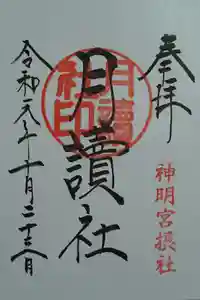 奉拝
神明宮摂社
月讀社
月讀
社印
令和元年十月二十